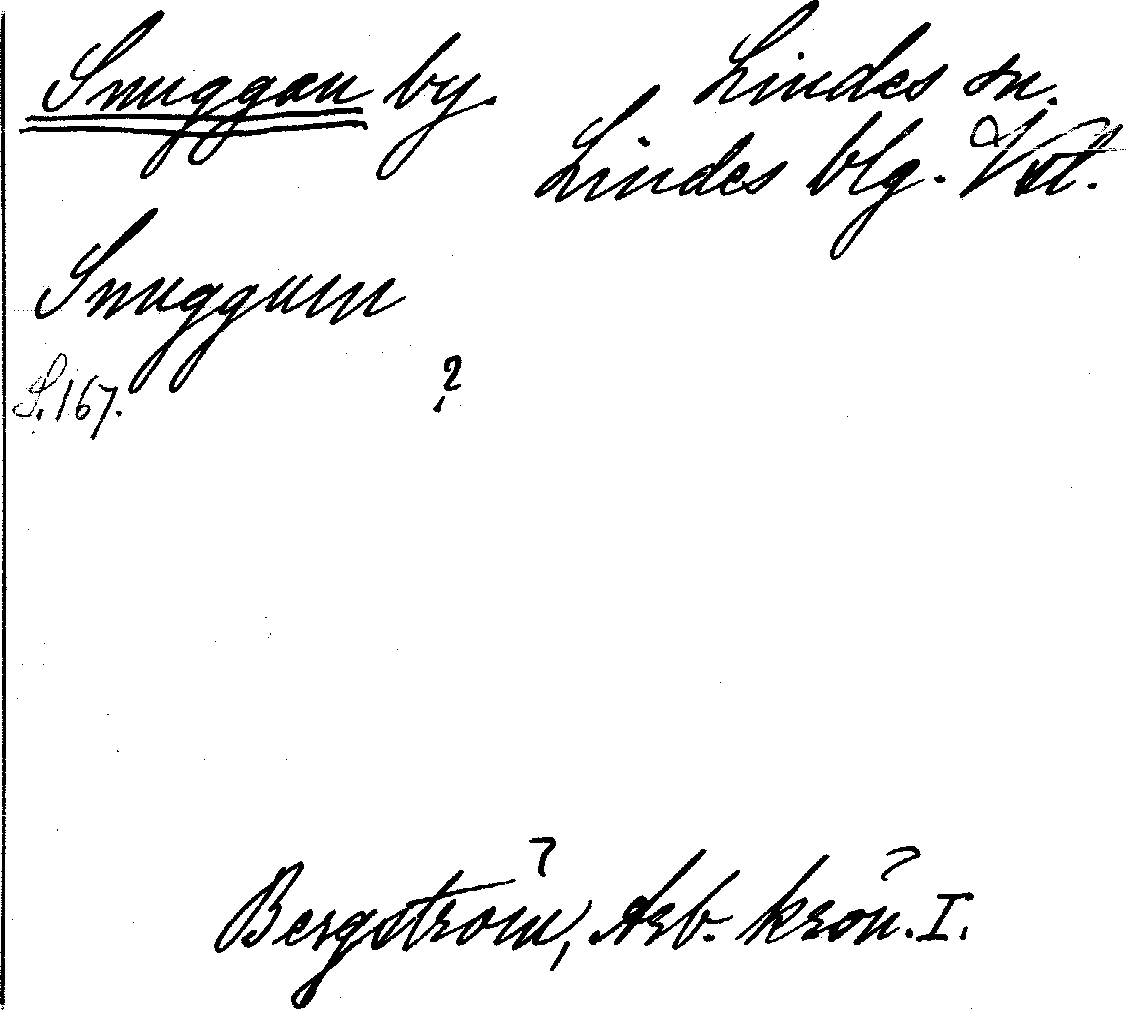 Snuggan by. Lindes sn.
Lindes blg. Vstl.
Snuggum
S. 167. ?
Bergström, Arb. krön. I.